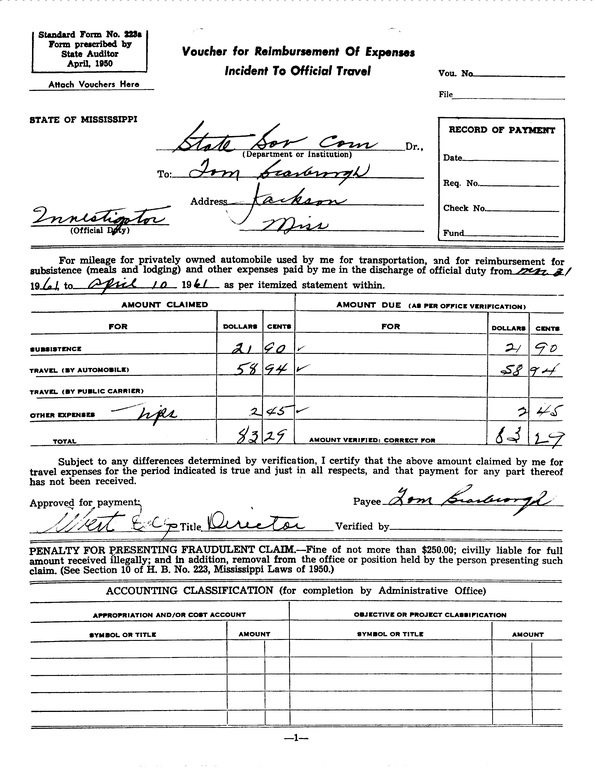 Standard Form No. 223a
Form prescribed by
State Auditor
April, 1950
Attach Vouchers Here
Voucher for Reimbursement Of Expenses
Incident To Official Travel
Vou. No.
File
STATE OF MISSISSIPPI
State Sov Com Dr.,
(Department or Institution)
To: Tom Scarbrough
Address Jackson
Miss
Investigator
(Official Duty)
RECORD OF PAYMENT
Date
Req. No.
Check No.
Fund
For mileage for privately owned automobile used by me for transportation, and for reimbursement for
subsistence (meals and lodging) and other expenses paid by me in the discharge of official duty from 21
1961 to April 10 1961 as per itemized statement within.
AMOUNT CLAIMED AMOUNT DUE (AS PER OFFICE VERIFICATION)
FOR DOLLARS CENTS FOR DOLLARS CENTS
SUBSISTENCE 21 90 ✓ 21 90
TRAVEL (BY AUTOMOBILE) 58 94 ✓ 58 94
TRAVEL (BY PUBLIC CARRIER)
OTHER EXPENSES Tips 2 45 ✓ 2 45
TOTAL 83 29 AMOUNT VERIFIED: CORRECT FOR 83 29
Subject to any differences determined by verification, I certify that the above amount claimed by me for
travel expenses for the period indicated is true and just in all respects, and that payment for any part thereof
has not been received.
Approved for payment: Payee Tom Scarbrough
Title Director Verified by
PENALTY FOR PRESENTING FRAUDULENT CLAIM.—Fine of not more than $250.00; civilly liable for full
amount received illegally; and in addition, removal from the office or position held by the person presenting such
claim. (See Section 10 of H. B. No. 223, Mississippi Laws of 1950.)
ACCOUNTING CLASSIFICATION (for completion by Administrative Office)
APPROPRIATION AND/OR COST ACCOUNT OBJECTIVE OR PROJECT CLASSIFICATION
SYMBOL OR TITLE AMOUNT SYMBOL OR TITLE AMOUNT
—1—